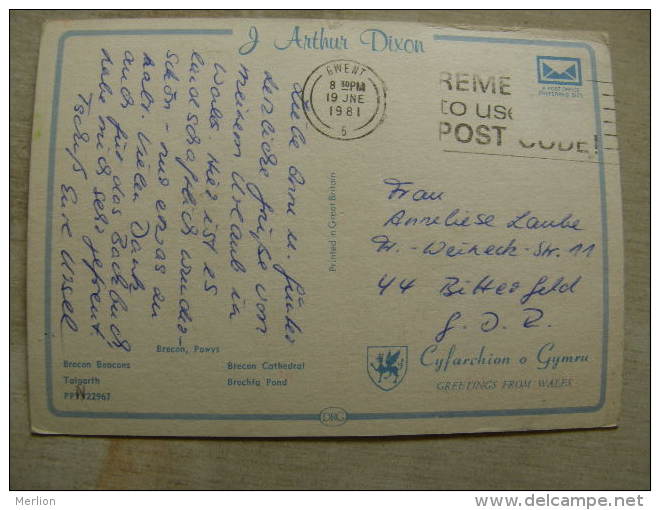 J Arthur Dixon
GWENT
8 30PM
19 JNE
1981
5
REME
to use
POST CODE!
A POST OFFICE
PREFERRED SIZE
Liebe Anne u. Günter
herzliche Grüße von
meinem Urlaub in
Wales. Hier ist es
landschaftlich wunder-
schön - nur etwas zu
kalt. Vielen Dank
auch für das Backbuch
habe mich sehr gefreut.
Tschüß Eure Ursel
Printed in Great Britain
Frau
Anneliese Laube
Fr.-Weineck-Str. 11
44 Bitterfeld
G.D.R.
Brecon, Powys
Brecon Beacons
Brecon Cathedral
Talgarth
Brechfa Pond
Cyfarchion o Gymru
GREETINGS FROM WALES
DRG
Merlion
www.delcampe.net